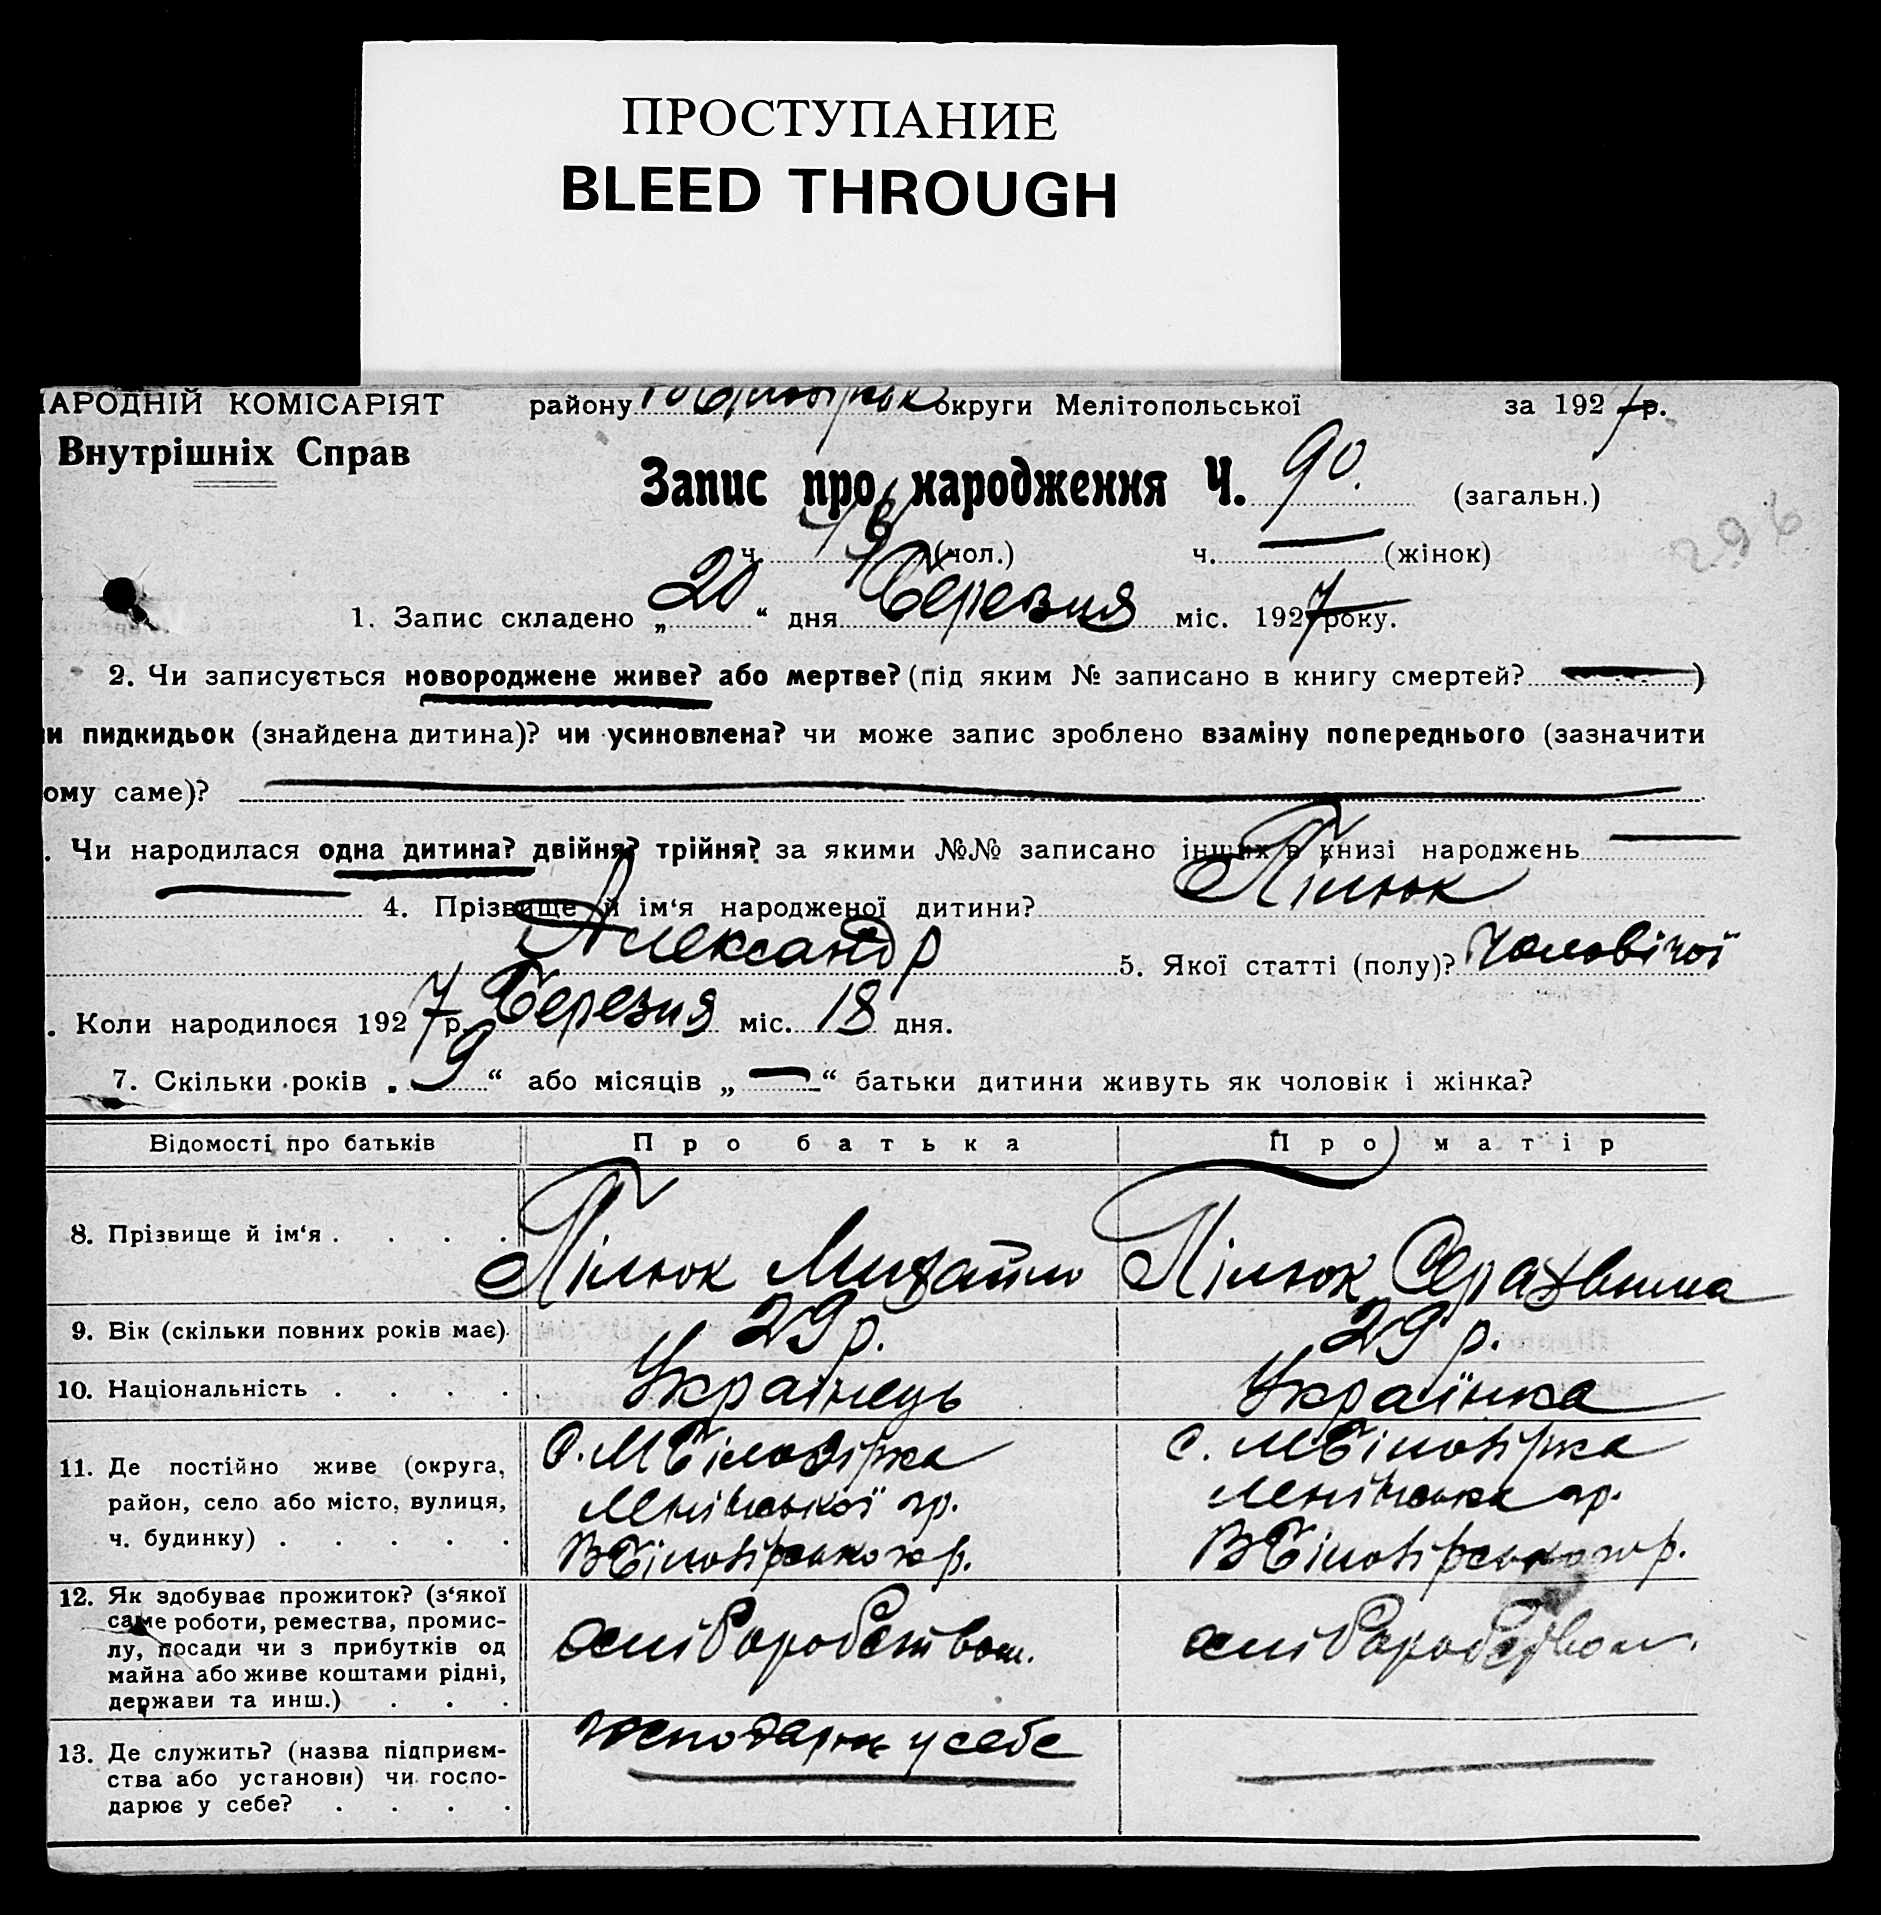 ПРОСТУПАНИЕ
BLEED THROUGH
АРОДНІЙ КОМІСАРІЯТ району округи Мелітопольської за 1927 р.
Внутрішніх Справ
Запис про народження Ч. 90. (загальн.)
ч. (чол.) ч. — (жінок)
296
1. Запис складено „20“ дня Березня міс. 1927 року.
2. Чи записується новороджене живе? або мертве? (під яким № записано в книгу смертей? —)
и пидкидьок (знайдена дитина)? чи усиновлена? чи може запис зроблено взаміну попереднього (зазначити
ому саме)? —
. Чи народилася одна дитина? двійня? трійня? за якими №№ записано інших в книзі народжень —
— 4. Прізвище й ім‘я народженої дитини? Пілюк
Александр 5. Якої статті (полу)? Чоловічої
. Коли народилося 1927 р. Березня міс. 18 дня.
7. Скільки років „9“ або місяців „—“ батьки дитини живуть як чоловік і жінка?
Відомості про батьків Про батька Про матір
8. Прізвище й ім‘я . . . . Пілюк Михайло Пілюк Серахвима
9. Вік (скільки повних років має). 29 р. 29 р.
10. Національність . . . . Українець Українка
11. Де постійно живе (округа, район, село або місто, вулиця, ч. будинку) . . . . .
с. МБілозірка
с. МБілозірка
ВБілозірського р.
ВБілозірського р.
12. Як здобуває прожиток? (з‘якої саме роботи, ремества, промис-
лу, посади чи з прибутків од
майна або живе коштами рідні,
держави та инш.) . . .
хліборобством.
хліборобством.
13. Де служить? (назва підприєм-
ства або установи) чи госпо-
дарює у себе? . . . .
господарює у себе
—